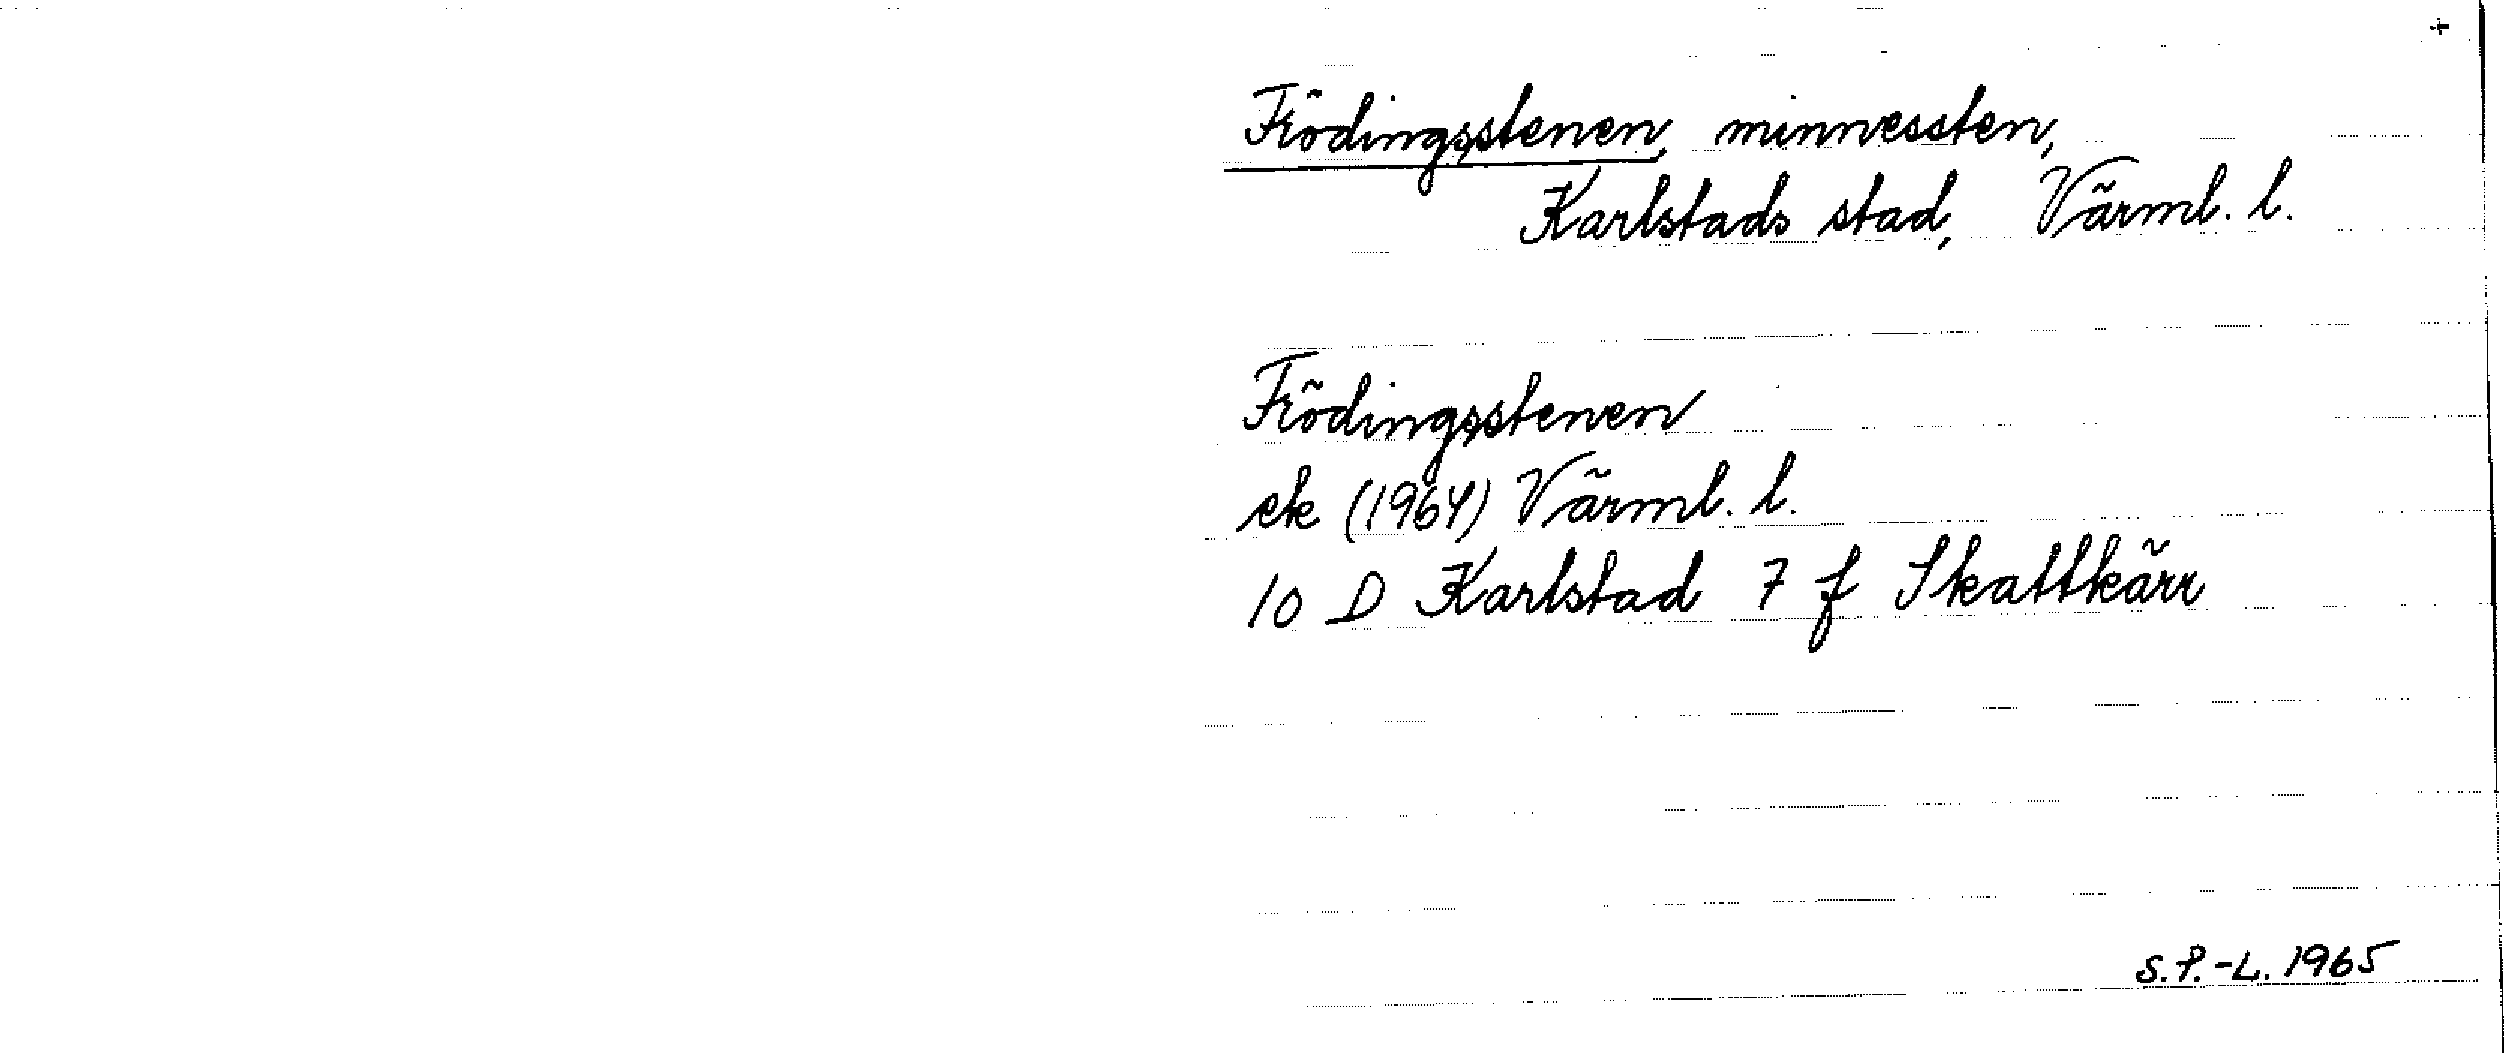 Frödingsstenen, minnessten,
Karlstads stad, Värml. l.
Frödingsstenen
ek (1964) Värml. l.
10 D Karlstad 7 f Skattkärr
S.P.-L. 1965